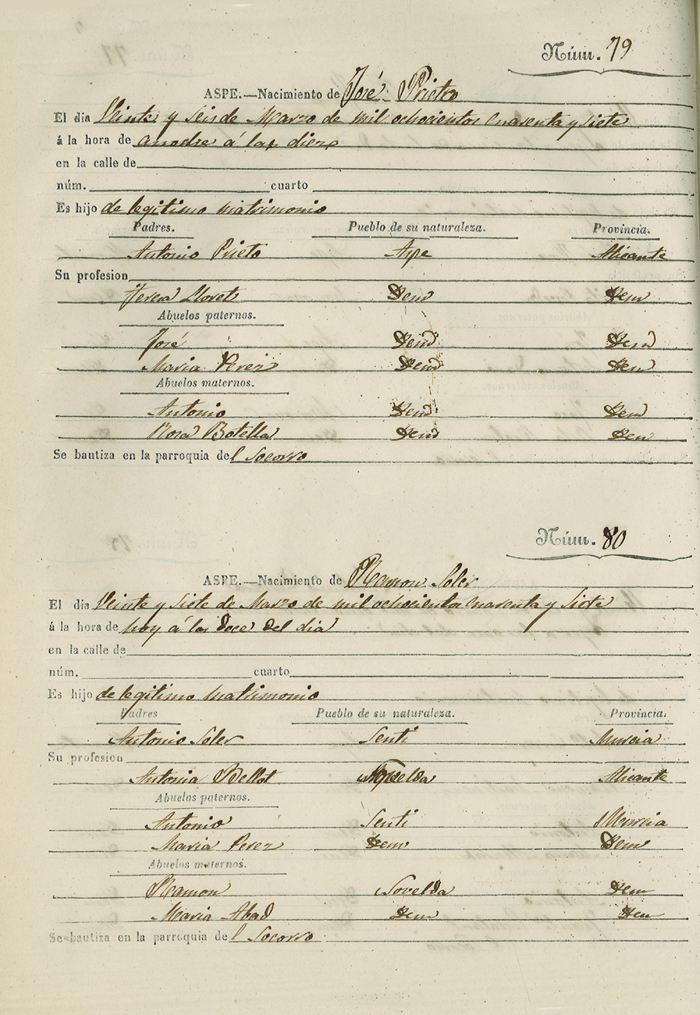 Núm. 79
ASPE.—Nacimiento de José Prieto
El día Veinte y Seis de Marzo de mil ochocientos cuarenta y siete
á la hora de anodre á las diez
en la calle de
núm. cuarto
Es hijo de legitimo matrimonio
Padres. Pueblo de su naturaleza. Provincia.
Antonio Prieto Aspe Alicante
Su profesion
Teresa Lloret Idem Idem
Abuelos paternos.
José Idem Idem
Maria Perez Idem Idem
Abuelos maternos.
Antonio Idem Idem
Rosa Botella Idem Idem
Se bautiza en la parroquia del Socorro
Núm. 80
ASPE.—Nacimiento de Ramon Soler
El día Veinte y Siete de Marzo de mil ochocientos cuarenta y Siete
á la hora de hoy á las doce del dia
en la calle de
núm. cuarto
Es hijo de legitimo matrimonio
Padres Pueblo de su naturaleza. Provincia.
Antonio Soler Senti Murcia
Su profesion
Antonia Bellot Novelda Alicante
Abuelos paternos.
Antonio Senti Murcia
Maria Perez Idem Idem
Abuelos maternos.
Ramon Novelda Idem
Maria Abad Idem Idem
Se bautiza en la parroquia del Socorro